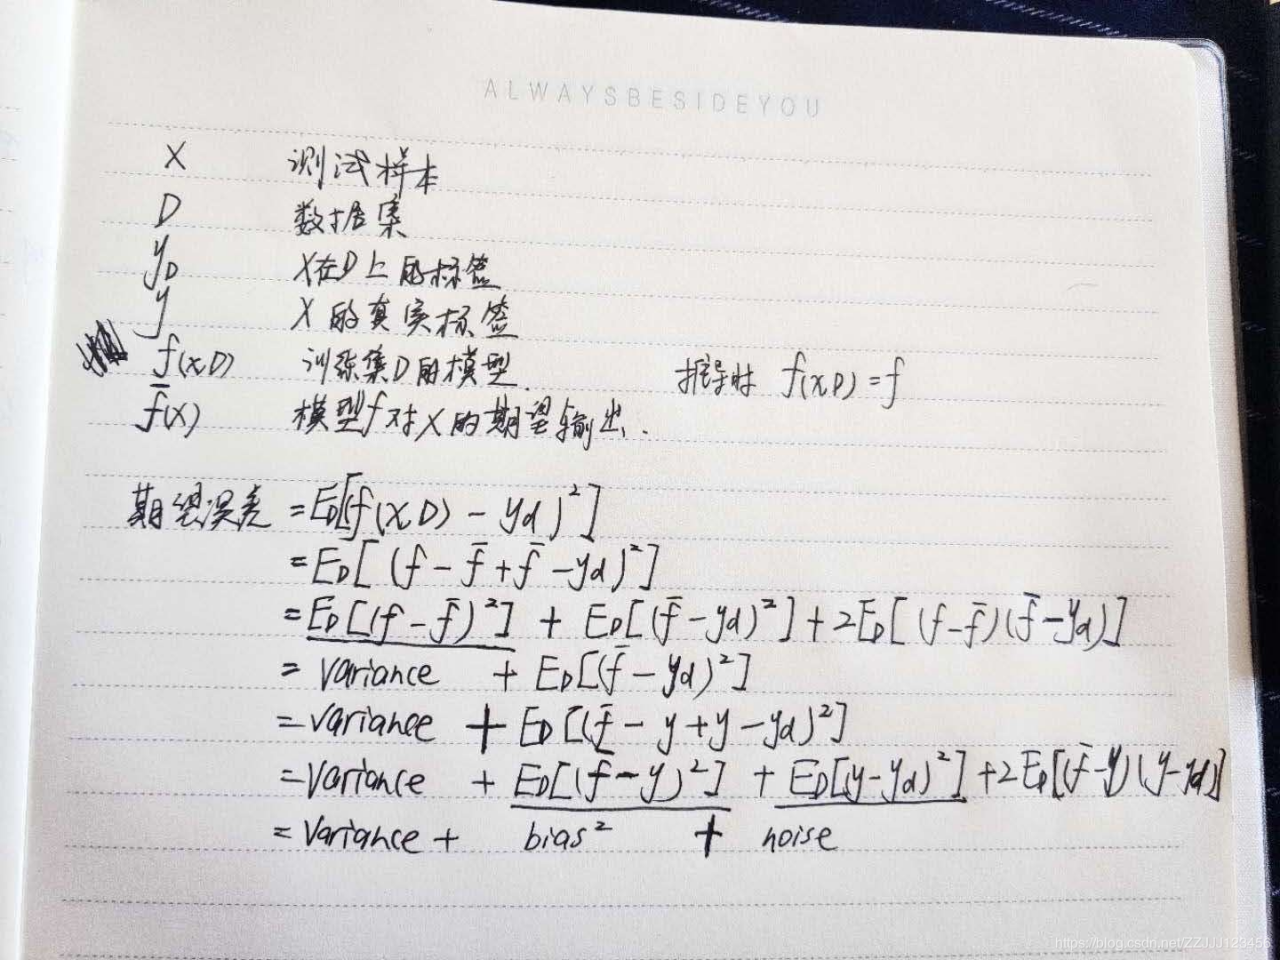 ALWAYSBESIDEYOU
X 测试样本
D 数据集
y_D X在D上的标签
y X的真实标签
f(x,D) 训练集D的模型. 推导时 f(xD)=f
f̄(X) 模型f对X的期望输出.
期望误差 = E_D[(f(xD) - y_d)²]
= E_D[(f - f̄ + f̄ - y_d)²]
= E_D[(f - f̄)²] + E_D[(f̄ - y_d)²] + 2E_D[(f - f̄)(f̄ - y_d)]
= variance + E_D[(f̄ - y_d)²]
= variance + E_D[(f̄ - y + y - y_d)²]
= variance + E_D[(f̄ - y)²] + E_D[(y - y_d)²] + 2E_D[(f̄ - y)(y - y_d)]
= variance + bias² + noise
https://blog.csdn.net/ZZJJJ123456